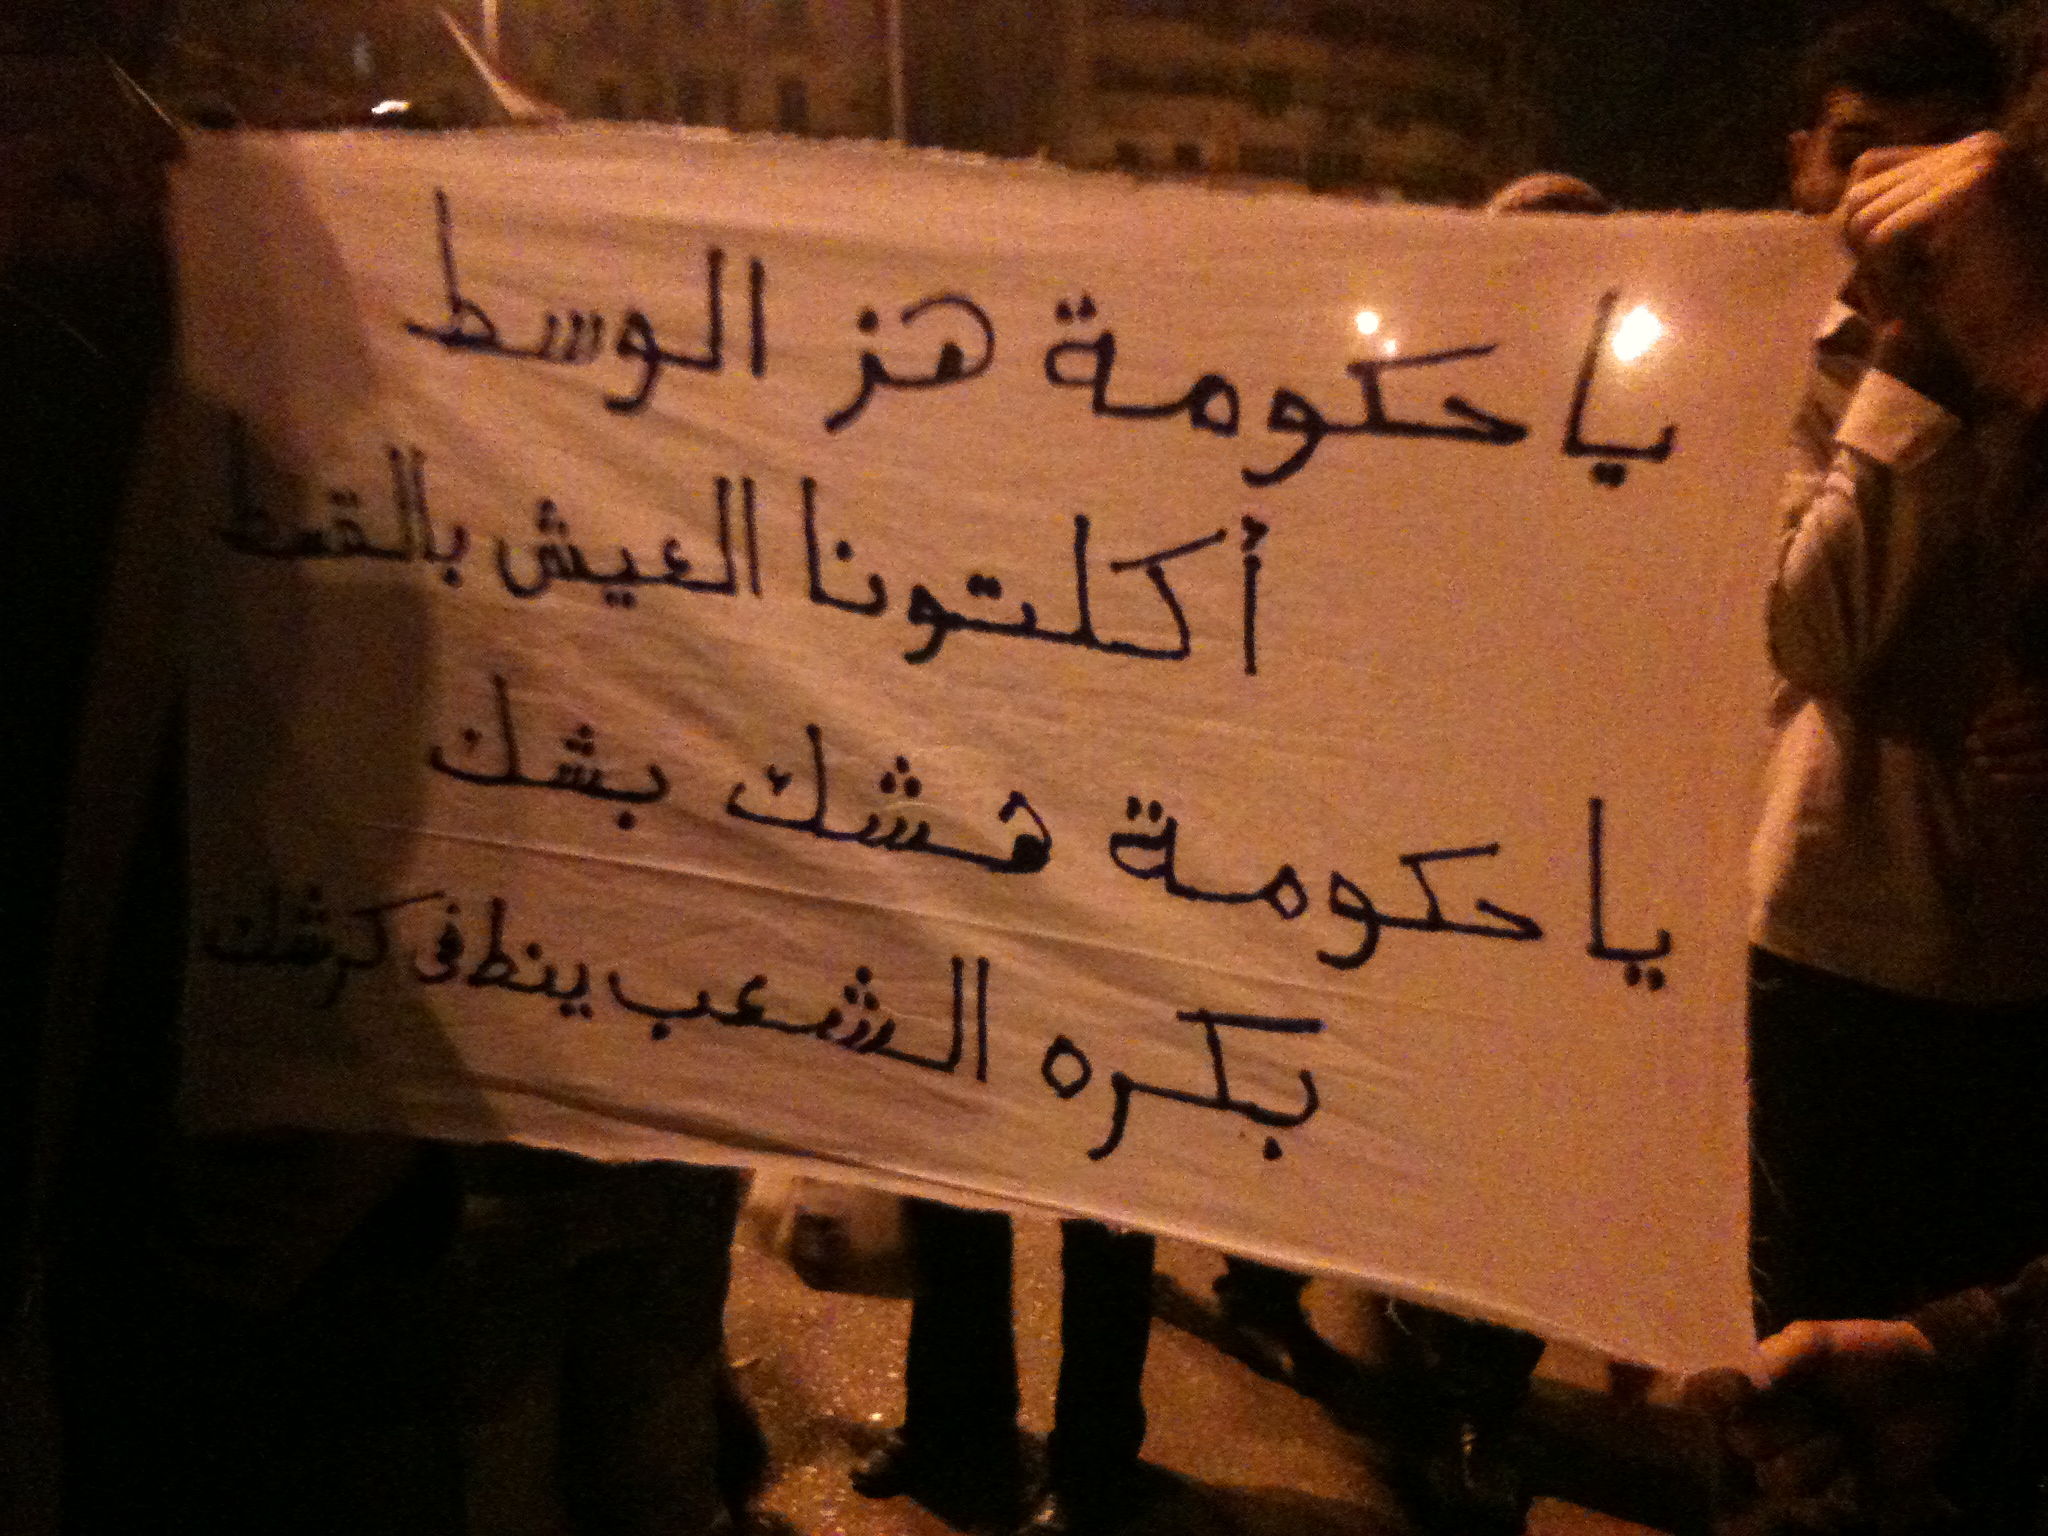 يا حكومة هز الوسط
أكلتونا العيش بالقسط
يا حكومة هشك بشك
بكره الشعب ينط فى كرشك